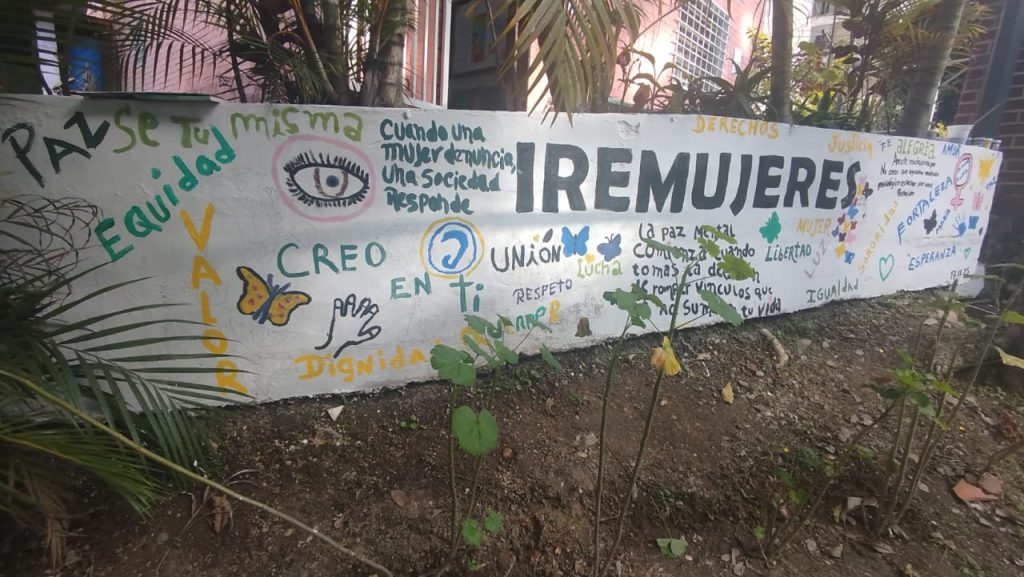 PAZ
Se Tu misma
Equidad
VALOR
Cuando una
mujer denuncia,
una Sociedad
Responde
CREO
EN ti
Dignidad
IREMUJERES
UNIÓN
lucha
RESPETO
La paz mental
comienza cuando
tomas la
de romper vínculos que
no suman a tu vida
DERECHOS
Justicia
LIBERTAD
MUJER
LUZ
Igualdad
SORORIDAD
FE
alegrEa
AMOR
FORTALEZA
ESPERANZA